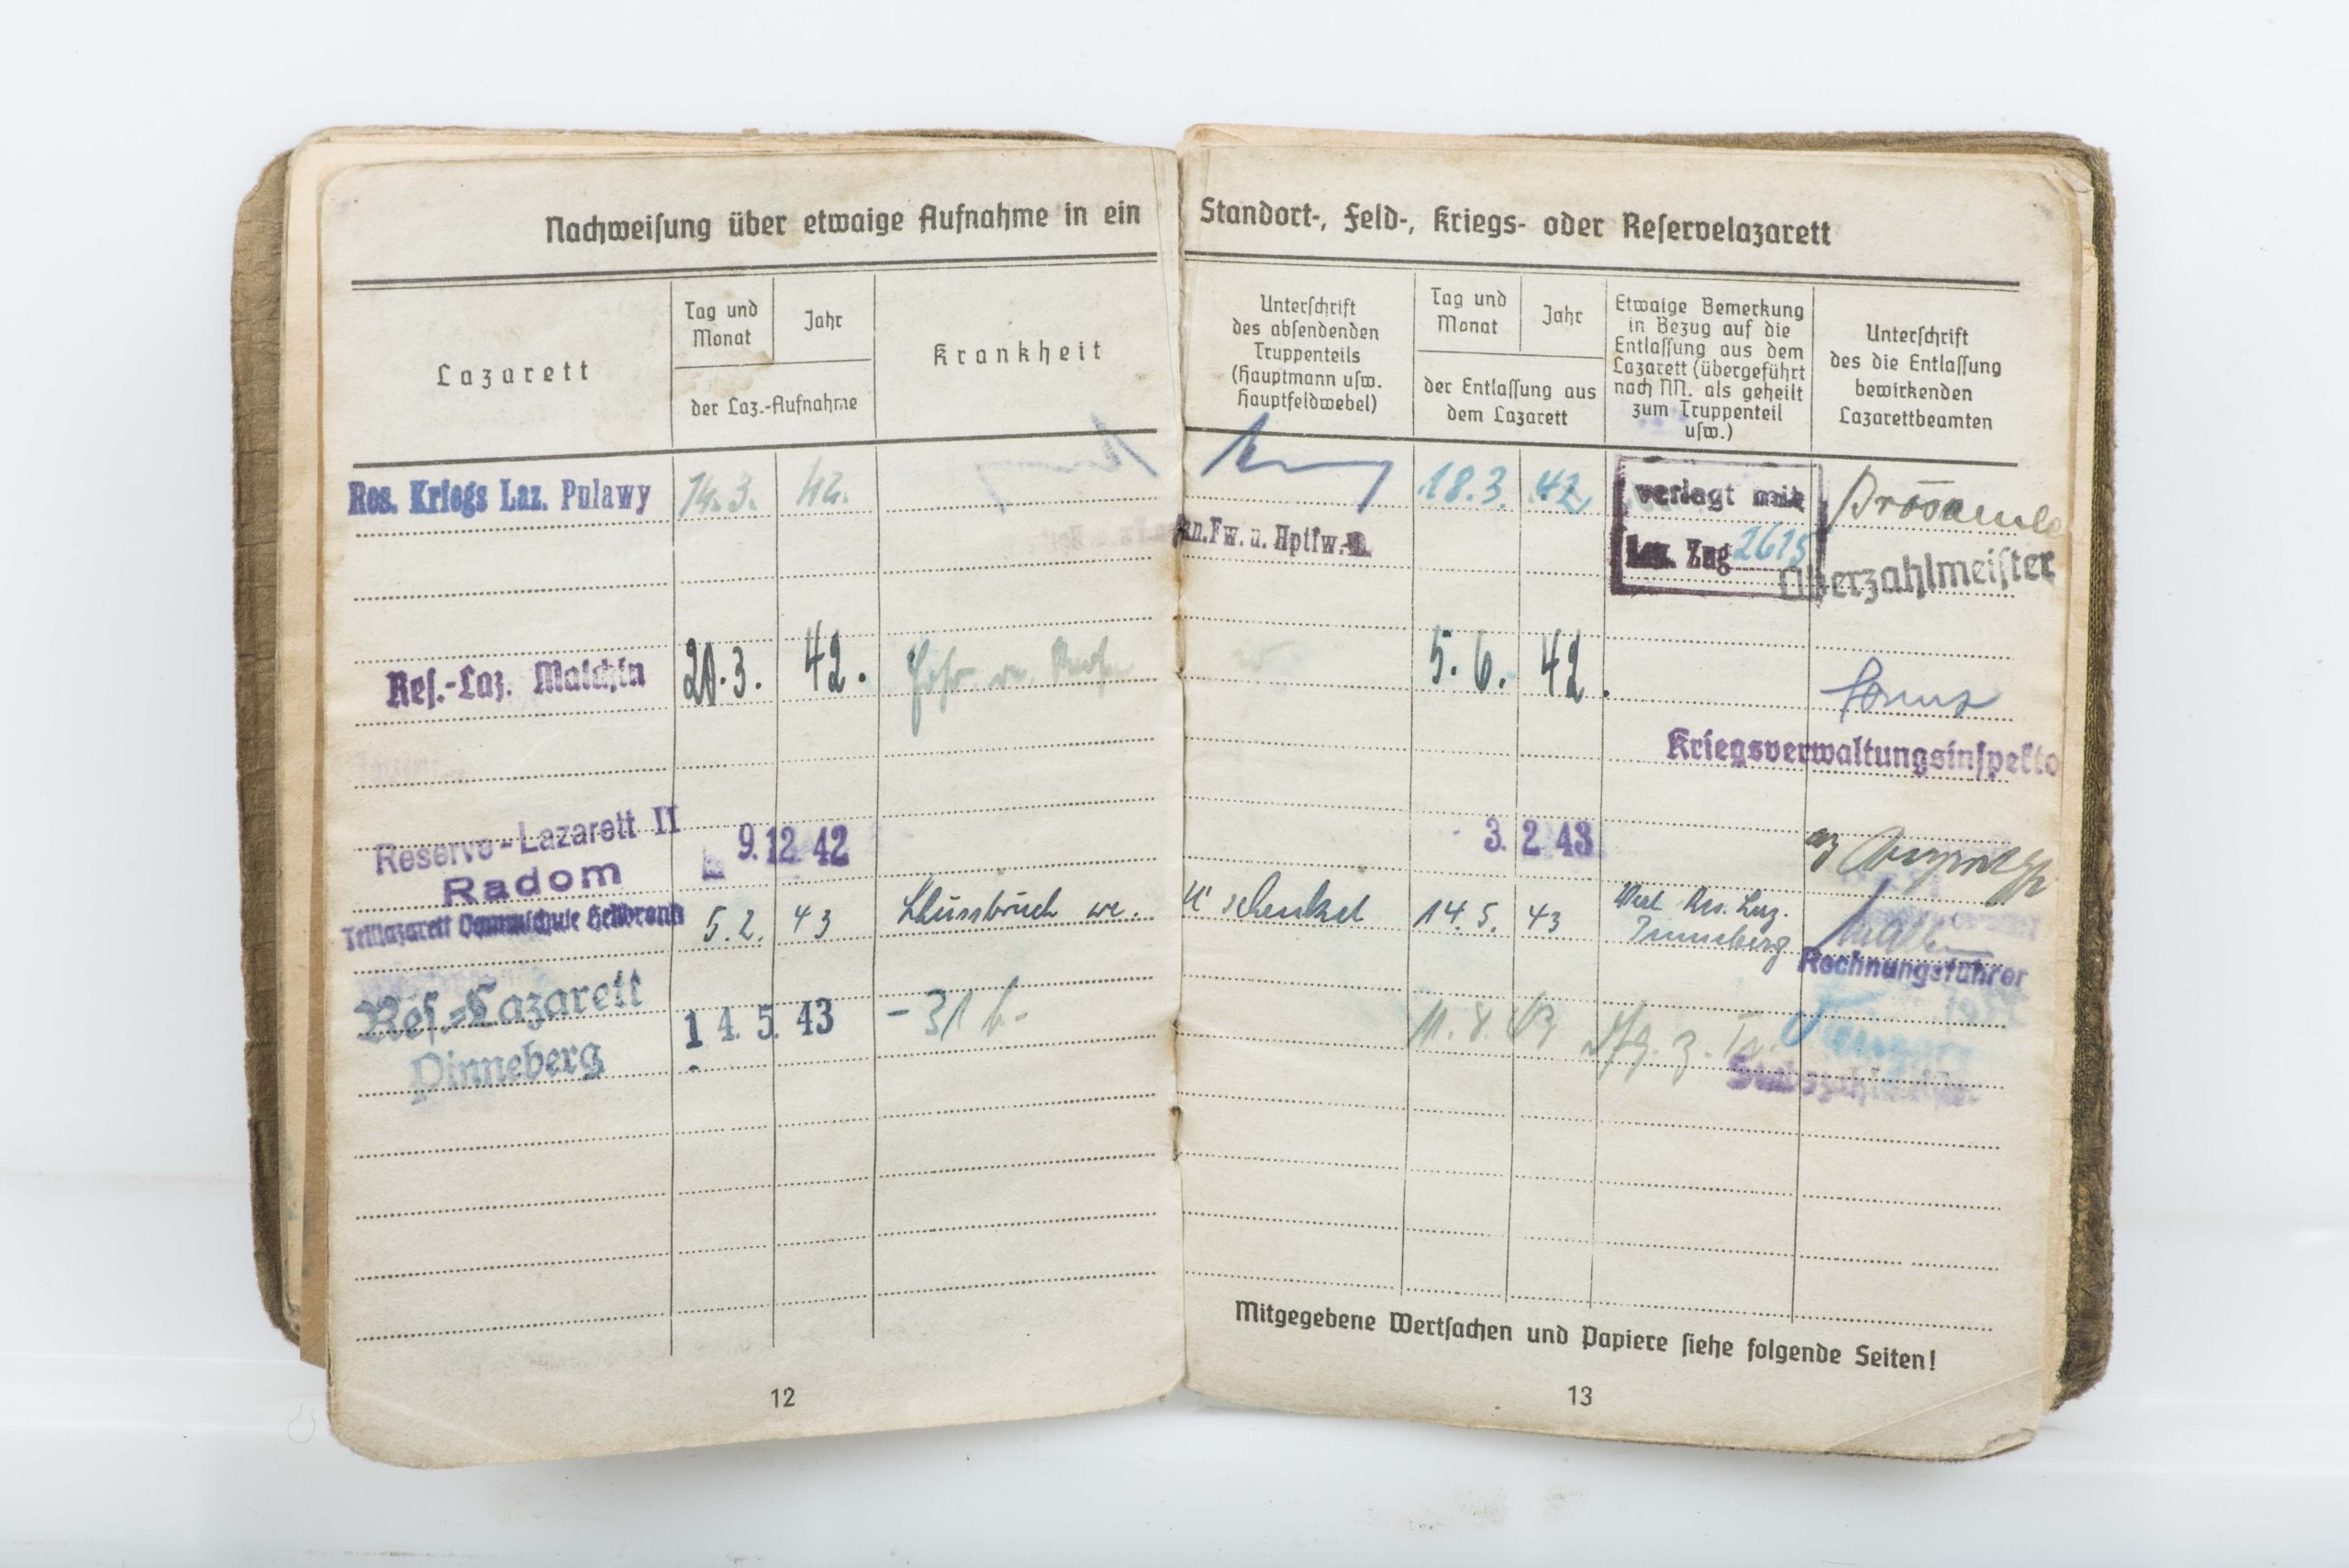 Nachweisung über etwaige Aufnahme in ein
Lazarett
Tag und
Monat
Jahr
der Laz.-Aufnahme
Krankheit
Res. Kriegs Laz. Pulawy 14.3. 42.
Res.-Laz. Malchin 20.3. 42.
Reserve-Lazarett II
Radom
9.12 42
Teillazarett Heilbronn 5.2. 43 re.
Res.-Lazarett
Pinneberg
14. 5. 43 - 31 b -
12
Standort-, Feld-, Kriegs- oder Reservelazarett
Unterschrift
des absendenden
Truppenteils
(Hauptmann usw.
Hauptfeldwebel)
Tag und
Monat
Jahr
der Entlassung aus
dem Lazarett
Etwaige Bemerkung
in Bezug auf die
Entlassung aus dem
Lazarett (übergeführt
nach NN. als geheilt
zum Truppenteil
usw.)
Unterschrift
des die Entlassung
bewirkenden
Lazarettbeamten
18.3. 42
verlegt mit
Laz. Zug 2615
an.Fw. u. Hptfw.
Oberzahlmeister
5.6. 42.
Kriegsverwaltungsinspekto
3. 2 43
U'schenkel 14.5. 43 Res. Laz.
Pinneberg
Rechnungsführer
11.8.43
Stabszahlmeister
Mitgegebene Wertsachen und Papiere siehe folgende Seiten!
13